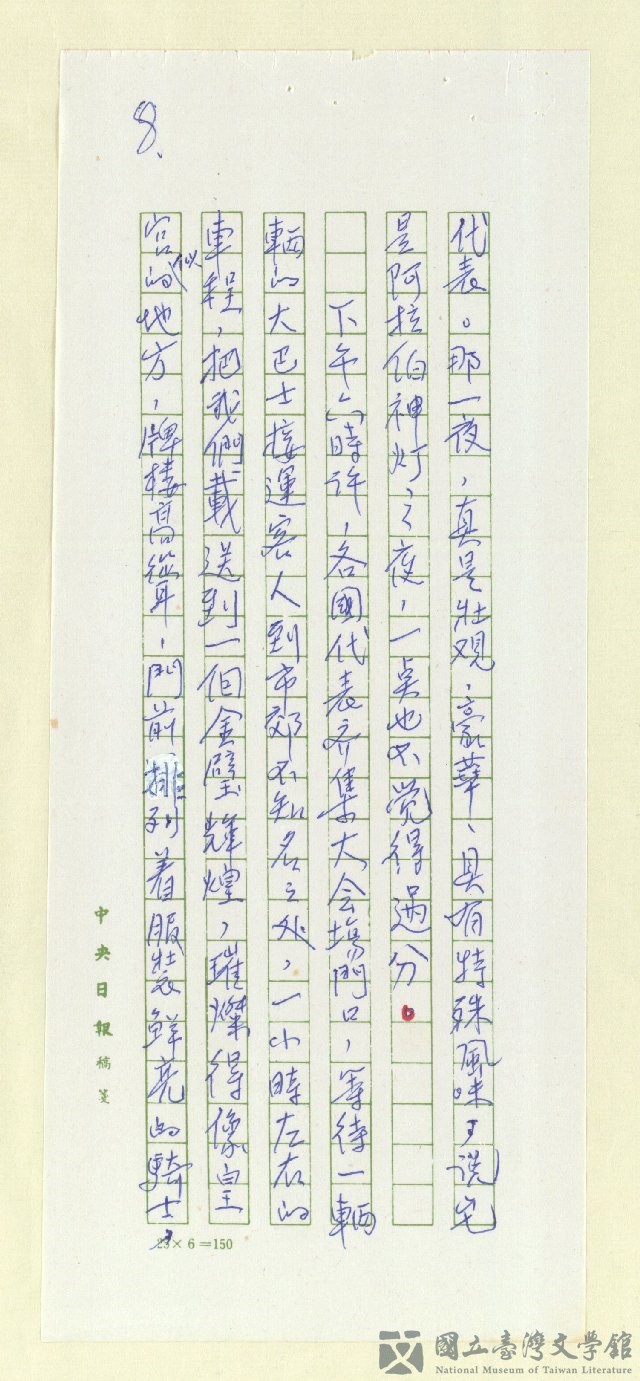 8、
代表。那一夜，真是壮观，豪華、具有特殊風味，说它
是阿拉伯神灯之夜，一点也不觉得過分。
下午六時许，各國代表齐集大会場門口，等待一輛
輛的大巴士接運客人到市郊不知名之处，一小時左右的
車程，把我們載送到一個金璧辉煌，璀燦得像皇
宮似的地方，牌楼高聳，門前排列着服裝鲜亮的騎士，
中央日報稿箋
25×6=150
國立臺灣文學館
National Museum of Taiwan Literature